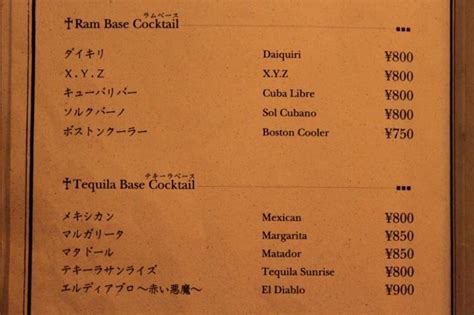 ラムベース
✝Ram Base Cocktail
ダイキリ Daiquiri ¥800
X.Y.Z X.Y.Z ¥800
キューバリバー Cuba Libre ¥800
ソルクバーノ Sol Cubano ¥800
ボストンクーラー Boston Cooler ¥750
テキーラベース
✝Tequila Base Cocktail
メキシカン Mexican ¥800
マルガリータ Margarita ¥850
マタドール Matador ¥850
テキーラサンライズ Tequila Sunrise ¥800
エルディアブロ ～赤い悪魔～ El Diablo ¥900